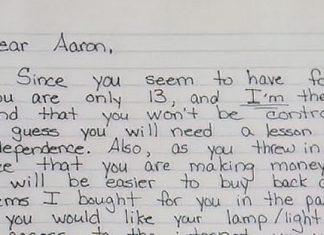 ear Aaron,
Since you seem to have fo
ou are only 13, and I'm the
nd that you won't be contro
guess you will need a lesson
dependence. Also, as you threw in
ce that you are making money
will be easier to buy back
ems I bought for you in the pa
you would like your lamp/light